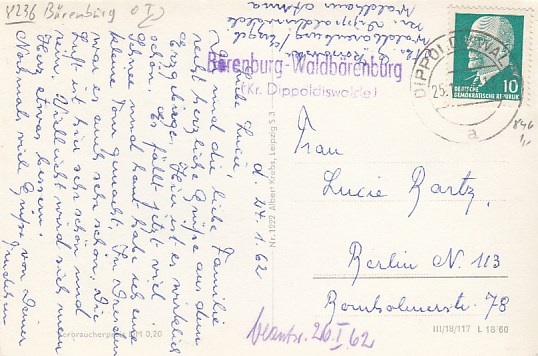 4236 Bärenburg
d. 24.1.62
Liebe Luci,
und die liebe Familie
recht herzliche Grüße aus dem
Erzgebirge. Hier ist es wirklich
schön. Es fällt jetzt viel
Schnee und heut habe ich eine
kleine Tour gemacht. In Dresden
war es auch sehr schön. Die
Luft ist hier sehr schön und
rein. Vielleicht wird sich mein
Herz etwas bessern.
Nochmal viel Grüße von Deiner
Bärenburg-Waldbärenburg
(Kr. Dippoldiswalde)
DIPPOLDISWALDE
a
10
DEUTSCHE
DEMOKRATISCHE REPUBLIK
Frau
Lucie Bartz
Berlin N. 113
Bornholmerstr. 78
beantw. 26.I.62
Nr. 1222 Albert Krebs, Leipzig S 3
Verbraucherpreis DM 0,20
III/18/117 L 18/60